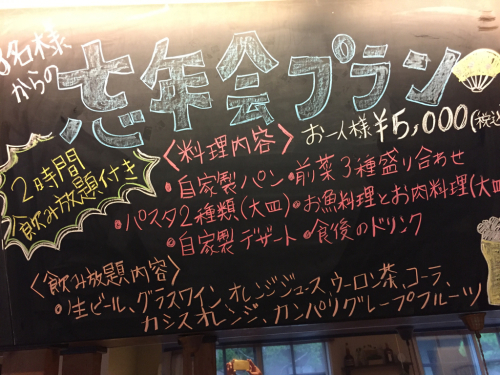 名様
からの
忘年会プラン
お一人様 ¥5,000(税込
2時間
飲み放題付き
<料理内容>
・自家製パン・前菜3種盛り合わせ
・パスタ2種類(大皿)・お魚料理とお肉料理(大皿
・自家製デザート・食後のドリンク
<飲み放題内容>
・生ビール、グラスワイン、オレンジジュース、ウーロン茶、コーラ、
カシスオレンジ、カンパリグレープフルーツ